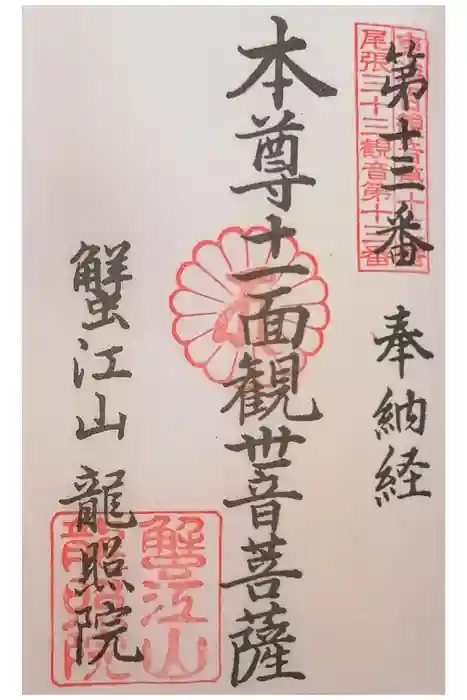 第十三番
尾張三十三観音第十三番
奉納経
本尊十一面観世音菩薩
蟹江山龍照院
蟹江山
龍照院